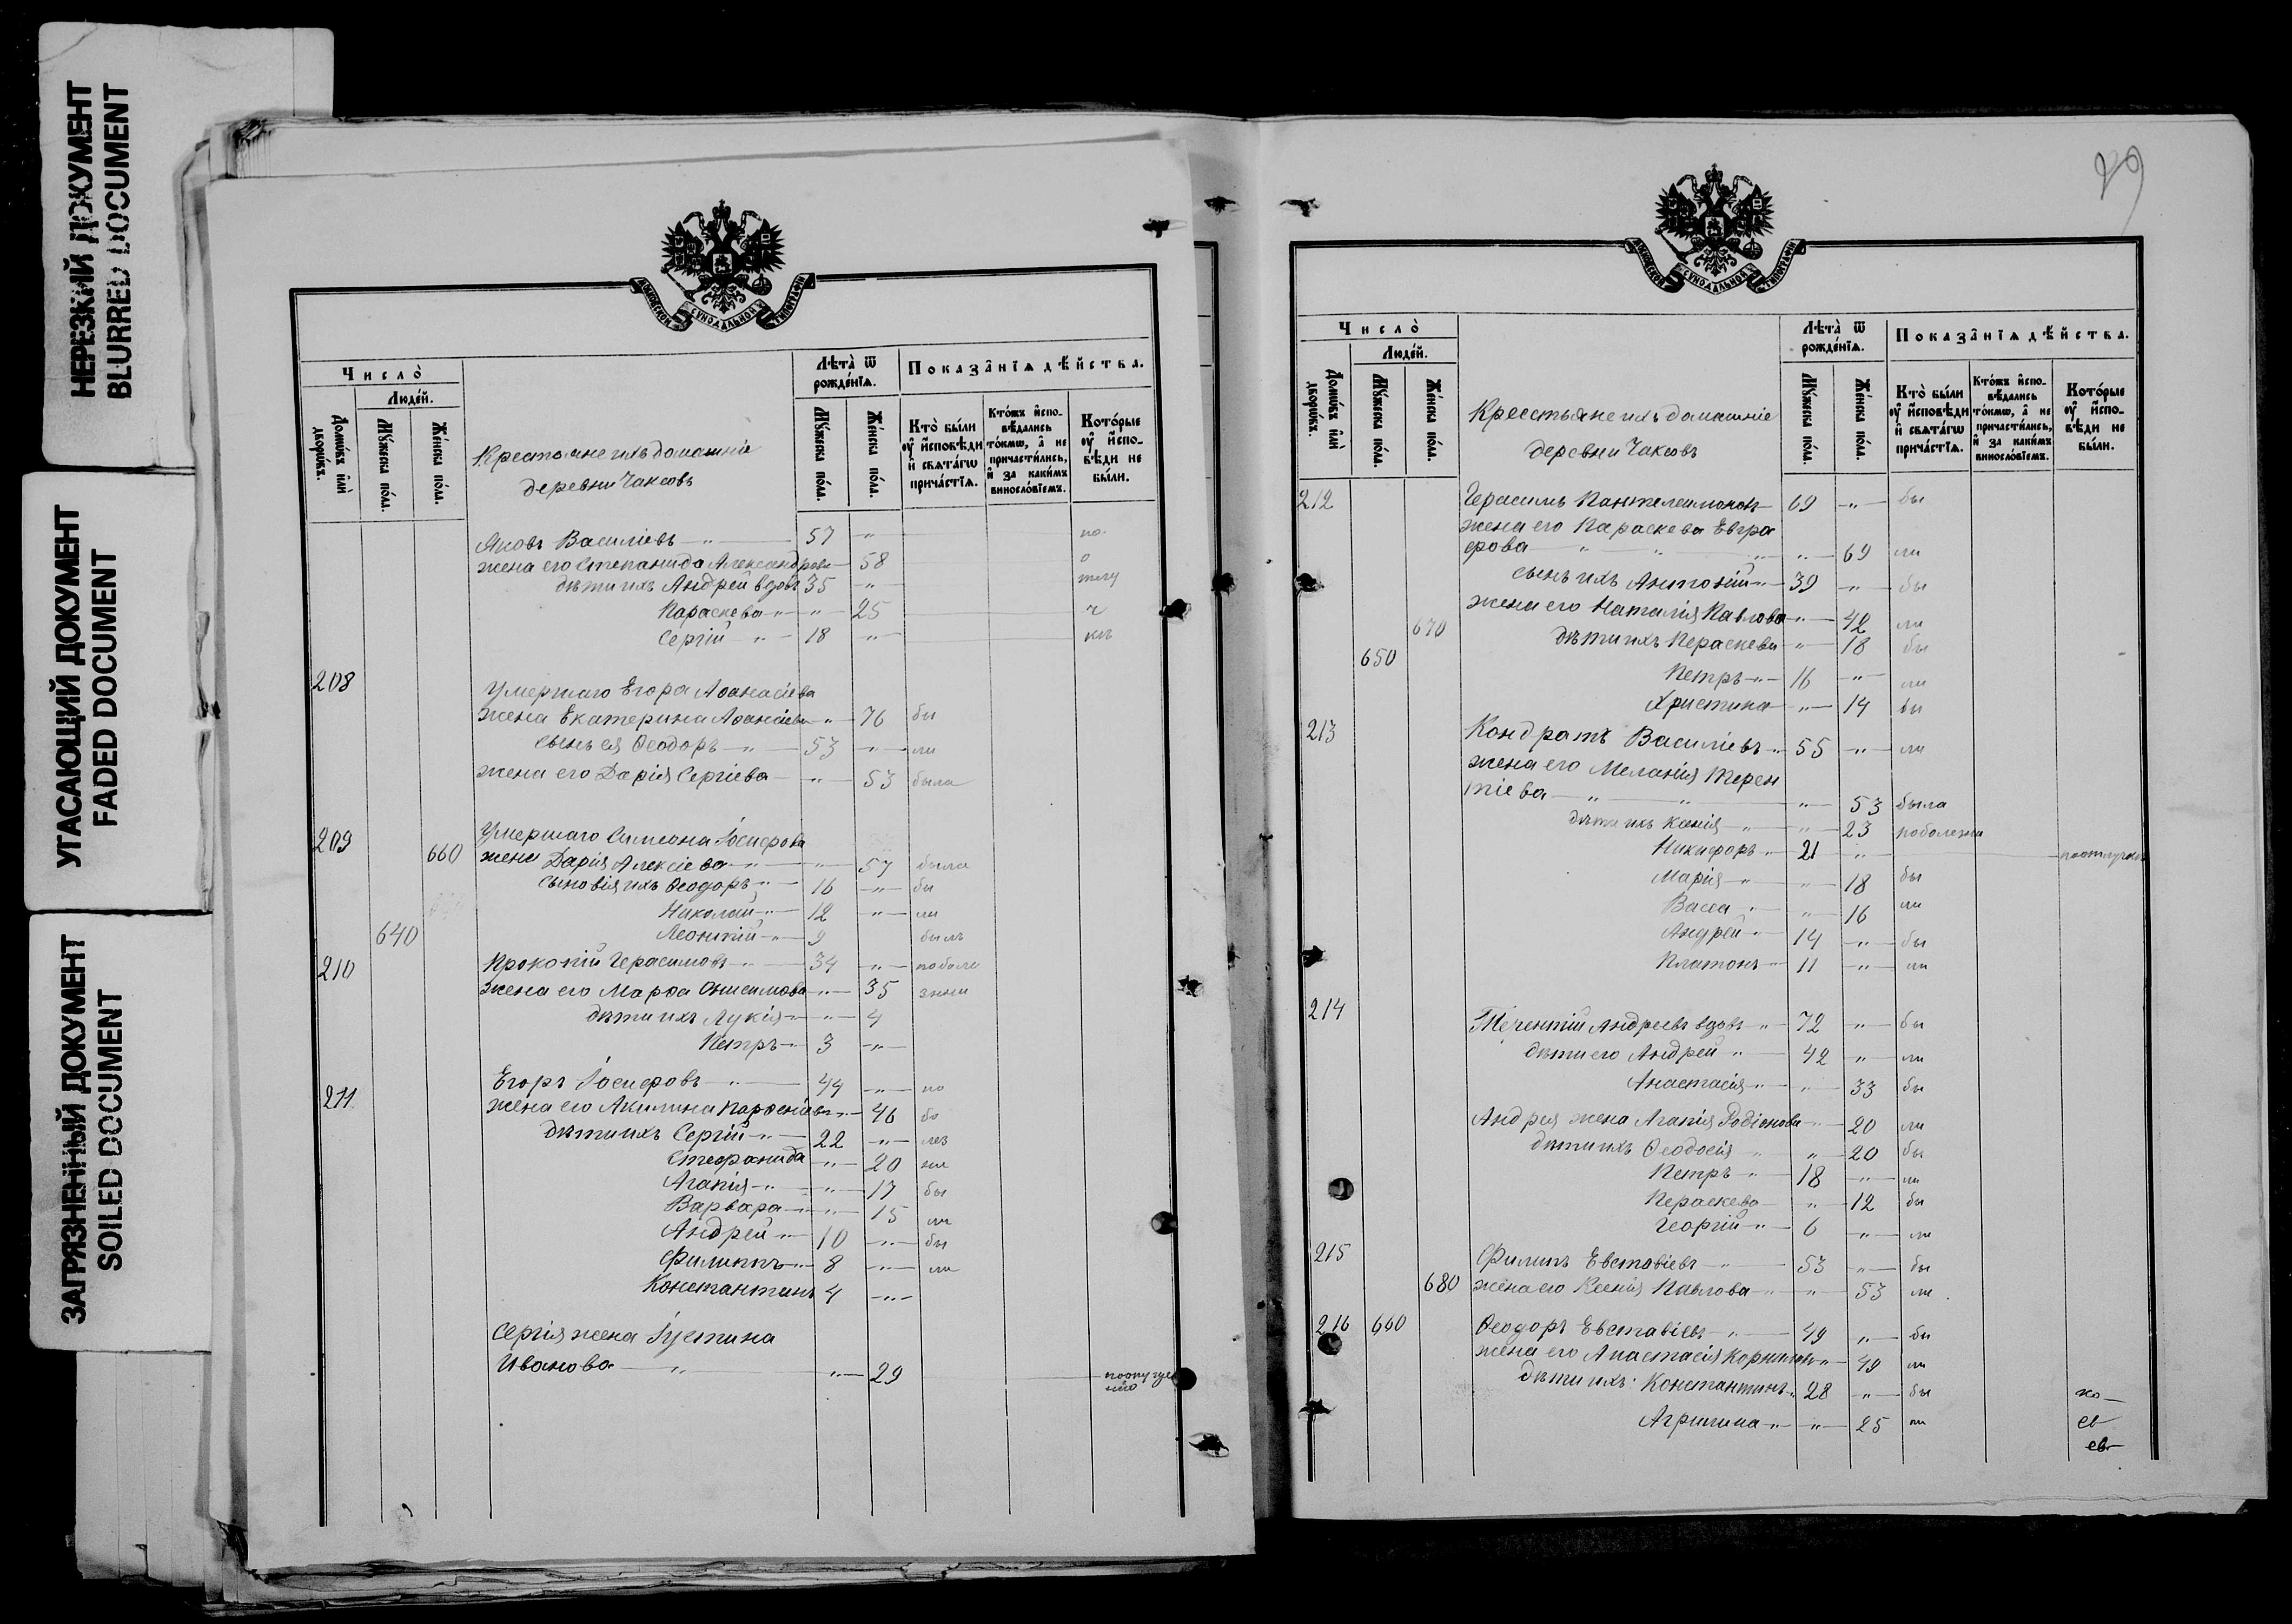 НЕРЕЗКИЙ ДОКУМЕНТ
BLURRED DOCUMENT
УГАСАЮЩИЙ ДОКУМЕНТ
FADED DOCUMENT
ЗАГРЯЗНЕННЫЙ ДОКУМЕНТ
SOILED DOCUMENT
МОСКОВСКОЙ СѴНОДАЛЬНОЙ ТИПОГРАФІИ
Число̀
Людей.
Домѡвъ и҆лѝ дворѡвъ.
Мꙋ́жеска по́ла.
Же́нска по́ла.
Крестьяне ихъ домашніе
деревни Чаксовъ
Лѣта̀ ѿ рожде́нїѧ.
Мꙋ́жеска по́ла.
Же́нска по́ла.
Показа̑нїѧ дѣ́йства.
Кто̀ бы́ли оу҆ и҆сповѣди и҆ свѧта́гѡ прича́стїѧ.
Кто́жъ и҆спо-вѣдались то́кмѡ, а҆ не причасти́лись, и҆ за каки́мъ виносло́вїемъ.
Кото́рые оу҆ и҆спо-вѣди не бы́ли.
Яковъ Василіевъ — " — 57 — " — по
жена его Степанида Александрова — 58 — о
дѣти ихъ Андрей вдовъ 35 — " — тлу
Параскева — " — " — 25 — ч
Сергій — " — 18 — " — къ
208 Умершаго Егора Аѳанасіева
жена Екатерина Аѳанасіева — " — 76 бы
сынъ ея Ѳеодоръ — " — 53 — " — ли
жена его Дарія Сергіева — " — 53 была
209 Умершаго Симеона Іосифова
660 жена Дарія Алексіева — " — 57 была
сыновія ихъ Ѳеодоръ — " — 16 — " — бы
Николай — " — 12 — " — ли
640 Леонтій — " — 9 былъ
210 Прокопій Герасимовъ — " — 34 — " — по боле
жена его Марѳа Онисимова — " — 35 зини
дѣти ихъ Лукія — " — 4
Петръ — " — 3 — " —
211 Егоръ Іосифовъ — " — 44 — " — по
жена его Акилина Парѳеніева — " — 46 бо
дѣти ихъ Сергій — " — 22 — " — лез
Стефанида — " — 20 ни
Агапія — " — " — 17 бы
Варвара — " — " — 15 ли
Андрей — " — 10 — " — бы
Филиппъ — " — 8 — " — ли
Константинъ 4 — " —
Сергія жена Іустина
Иванова — " — " — 29
29
МОСКОВСКОЙ СѴНОДАЛЬНОЙ ТИПОГРАФІИ
Число̀
Людей.
Домѡвъ и҆лѝ дворѡвъ.
Мꙋ́жеска по́ла.
Же́нска по́ла.
Крестьяне ихъ домашніе
деревни Чаксовъ
Лѣта̀ ѿ рожде́нїѧ.
Мꙋ́жеска по́ла.
Же́нска по́ла.
Показа̑нїѧ дѣ́йства.
Кто̀ бы́ли оу҆ и҆сповѣди и҆ свѧта́гѡ прича́стїѧ.
Кто́жъ и҆спо-вѣдались то́кмѡ, а҆ не причасти́лись, и҆ за каки́мъ виносло́вїемъ.
Кото́рые оу҆ и҆спо-вѣди не бы́ли.
212 Герасимъ Пантелеимоновъ 69 — " — бы
жена его Параскева Евгра
фова — " — " — 69 ли
сынъ ихъ Антоній — " — 39 — " — бы
жена его Наталія Павлова — " — 42 ли
670 дѣти ихъ Пераскева — " — 18 бы
650 Петръ — " — 16 — " — ли
Христина — " — 14 бы
213 Кондратъ Василіевъ — " — 55 — " — ли
жена его Меланія Терен
тіева — " — " — " — 53 была
дѣти ихъ Ксенія — " — " — 23 по болезни
Никифоръ — " — 21 — " — по отлучкѣ
Марія — " — " — 18 бы
Васса — " — " — 16 ли
Андрей — " — 14 — " — бы
Платонъ — " — 11 — " — ли
214 Терентій Андреевъ вдовъ — " — 72 — " — бы
дѣти его Андрей — " — 42 — " — ли
Анастасія — " — " — 33 бы
Андрея жена Агапія Родіонова — " — 20 ли
дѣти ихъ Ѳеодосія — " — " — 20 бы
Петръ — " — 18 — " — ли
Пераскева — " — 12 бы
Георгій — " — 6 — " — ли
215 Филипъ Евставіевъ — " — 53 — " — бы
680 жена его Ксенія Павлова — " — " — 53 ли
216 660 Ѳеодоръ Евставіевъ — " — 49 — " — бы
жена его Анастасія Корнилова — " — 49 ли
дѣти ихъ Константинъ — " — 28 — " — бы
Агрипина — " — " — 25 ли